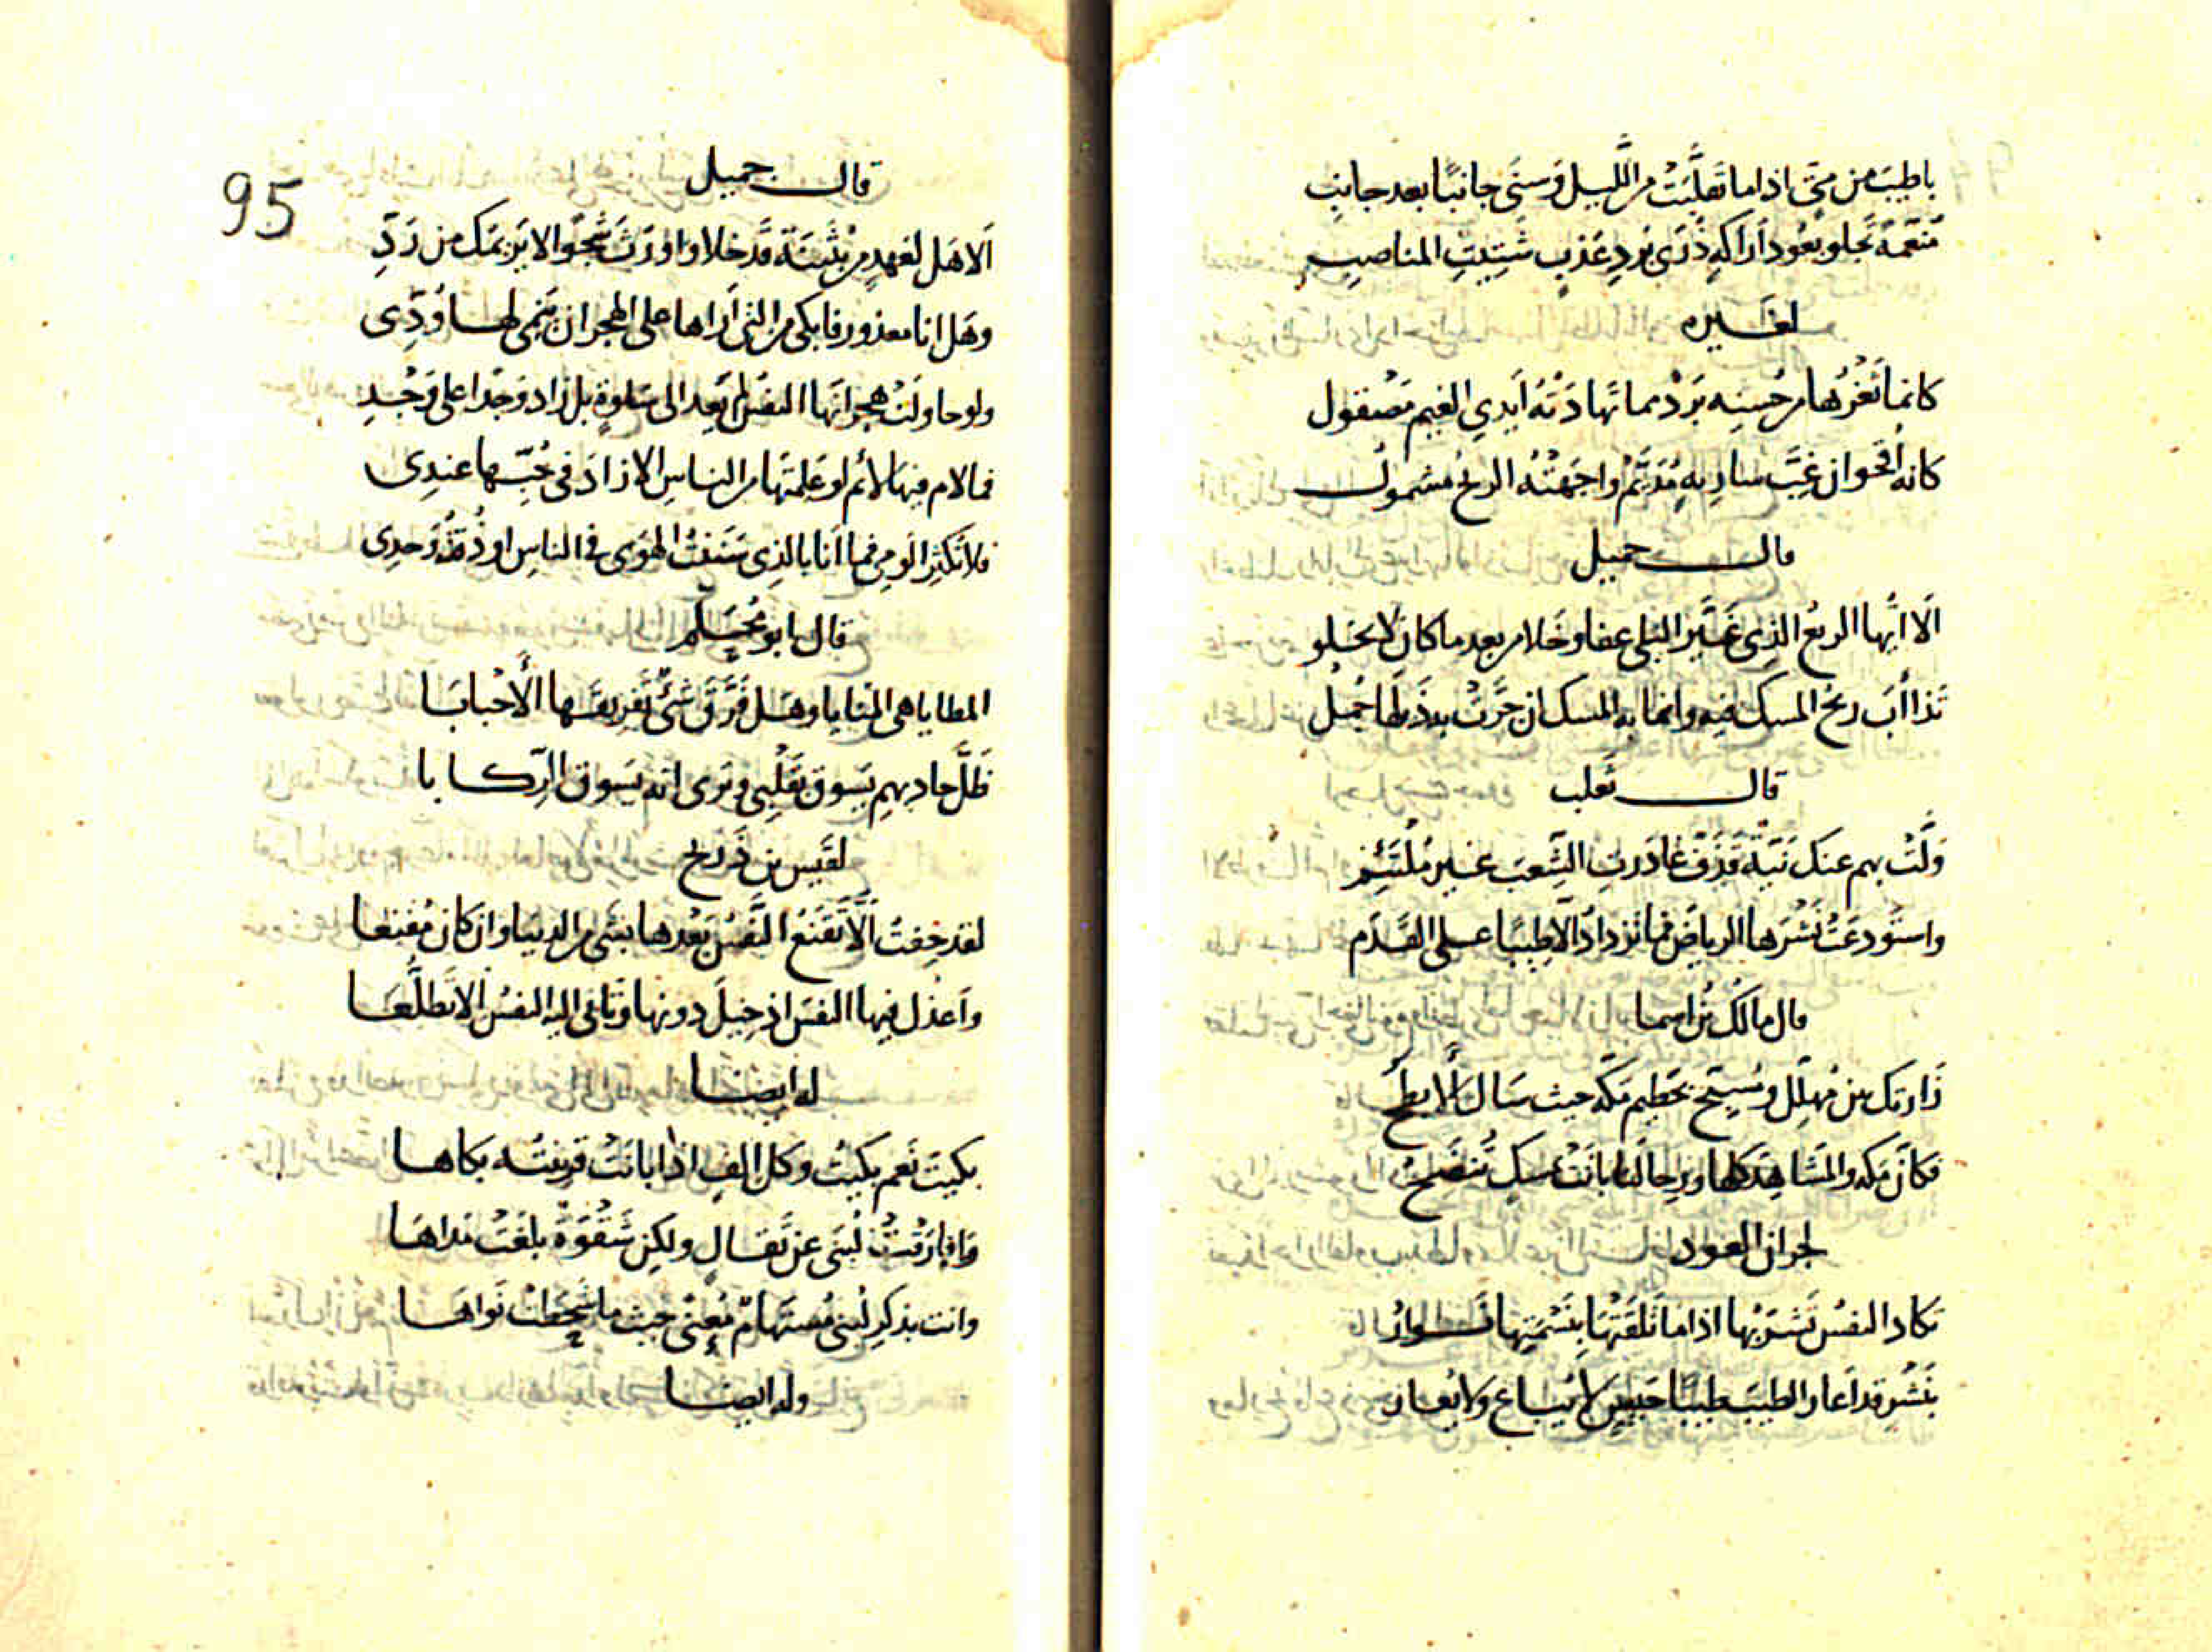 باطيب من مَيّ اذا ما تقلّبَتْ من اللَّيل وَسنَى جانبًا بعد جانب
مُنَعَّمةٌ تجلو بعُود أراكةٍ ذُرَى بَرَدٍ عَذبٍ شَتِيتِ المناصبِ
لغيره
كانما ثَغْرُها من حُسنِه بَرَدٌ مما تهادَتْهُ أيدِي الغيم مَصْقول
كانه أقحوان غِبَّ ساريةٍ واجَهَتْهُ الريحُ مشمول
قال جميل
الا ايُّها الربعُ الذِى غَيَّر البلى عفا وخلا من بعد ما كان لا يخلو
تذاأبَ ريحُ المسك فيه وانما به المسك ان جَرَّتْ به ذَيلَها جُمْلُ
قال ثعلب
وَلَّتْ بهم عنك نيّةٌ قَذَفٌ غادَرتِ الشَّعبَ غير مُلْتَئِمِ
واستَودعَتْ نَشْرَها الرياضَ فما تزدادُ الا طيبًا على القِدَم
قال مالك بنُ اسما
زَارتك بين مُهلّلٍ ومُسبّحٍ بحَطِيم مكّه حيث سَال الأبطحُ
فكأنّ مكه والمشَاهِدَ كلها ورِحالنا باتَتْ بمسكٍ تُنضَحُ
لجران العود
تكاد النفسُ تَشرَبُها اذا ما تلقَّتْهَا بنَسْمَتِها نَوارُ
بنَشْرٍ قد اعار الطيبَ طيبًا حَبيسٍ لا يُباع ولا يُعار
95
قال جميل
ألا هَل لعَهدٍ من بُثَينَةَ قد خلا واورَثَ شَجْوًا لا يَرِيمُك من رَدِّ
وهَل انا معذورٌ فابكى من التى أراها على الهجران يَنمِى لها وُدِّى
ولو حاولَتْ هجرانَها النفسُ لم تَعُد الى سَلوةٍ بل زاد وَجْدًا على وَجْدِ
فما لام فيها لائم لو عَلِمتَها من الناسِ الا زادَ فى حُبّها عندِى
فلا تُكثِرا لَومِى فما انا بالذِى سَنَنتُ الهَوَى فى الناسِ او ذُقْتُهُ وَحدِى
قال ابو محلّم
المطايا هى المنايا وهَل فَرَّقَ شَىءٌ تفريقَها الأحْبابَا
ظَلَّ حاديهِم يَسوق بقَلْبى ويَرى انه يَسوق الرِّكابا
لقَيس بن ذَريح
لقد خِفتُ ألّا تَقنَعُ النَّفسُ بَعْدها بشى من الدنيا وان كان مُقنِعا
وأعذُل فيها النفسَ اذ حِيلَ دونها وتابى اليه النفسُ الا تَطلُّعَا
له ايضا
بكيتَ نَعم بكيتَ وكل إلفٍ اذا بانَتْ قرِينتُه بكاها
وَما فارَقتُ لُبنَى عن تَقالٍ ولكن شَقْوَةٌ بلغَتْ مَداهَا
وانت بذِكرِ لُبنى مُستهامٌ مُعنّى حيث ما شَحَطتْ نَواهَا
وله ايضا